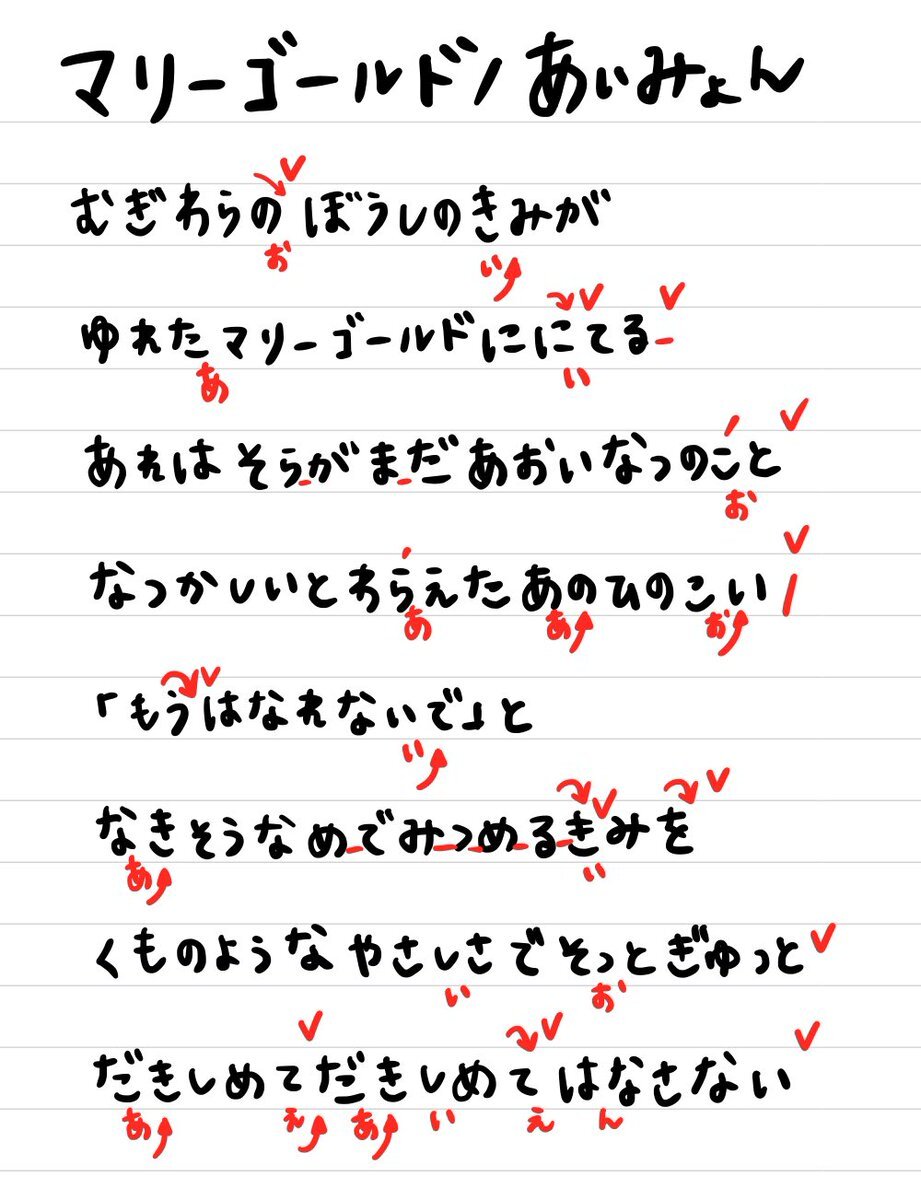 マリーゴールド/あいみょん
むぎわらの ぼうしのきみが
お い
ゆれたマリーゴールドににてるー
あ い
あれはそらがまだあおいなつのこと
お
なつかしいとわらえたあのひのこい
あ あ お
「もうはなれないで」と
い
なきそうなめでみつめるきみを
あ い
くものようなやさしさでそっとぎゅっと
い お
だきしめてだきしめてはなさない
あ え あ い え ん